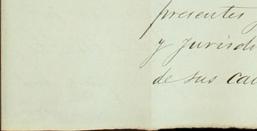 presentes
y jurisdi
de sus cau